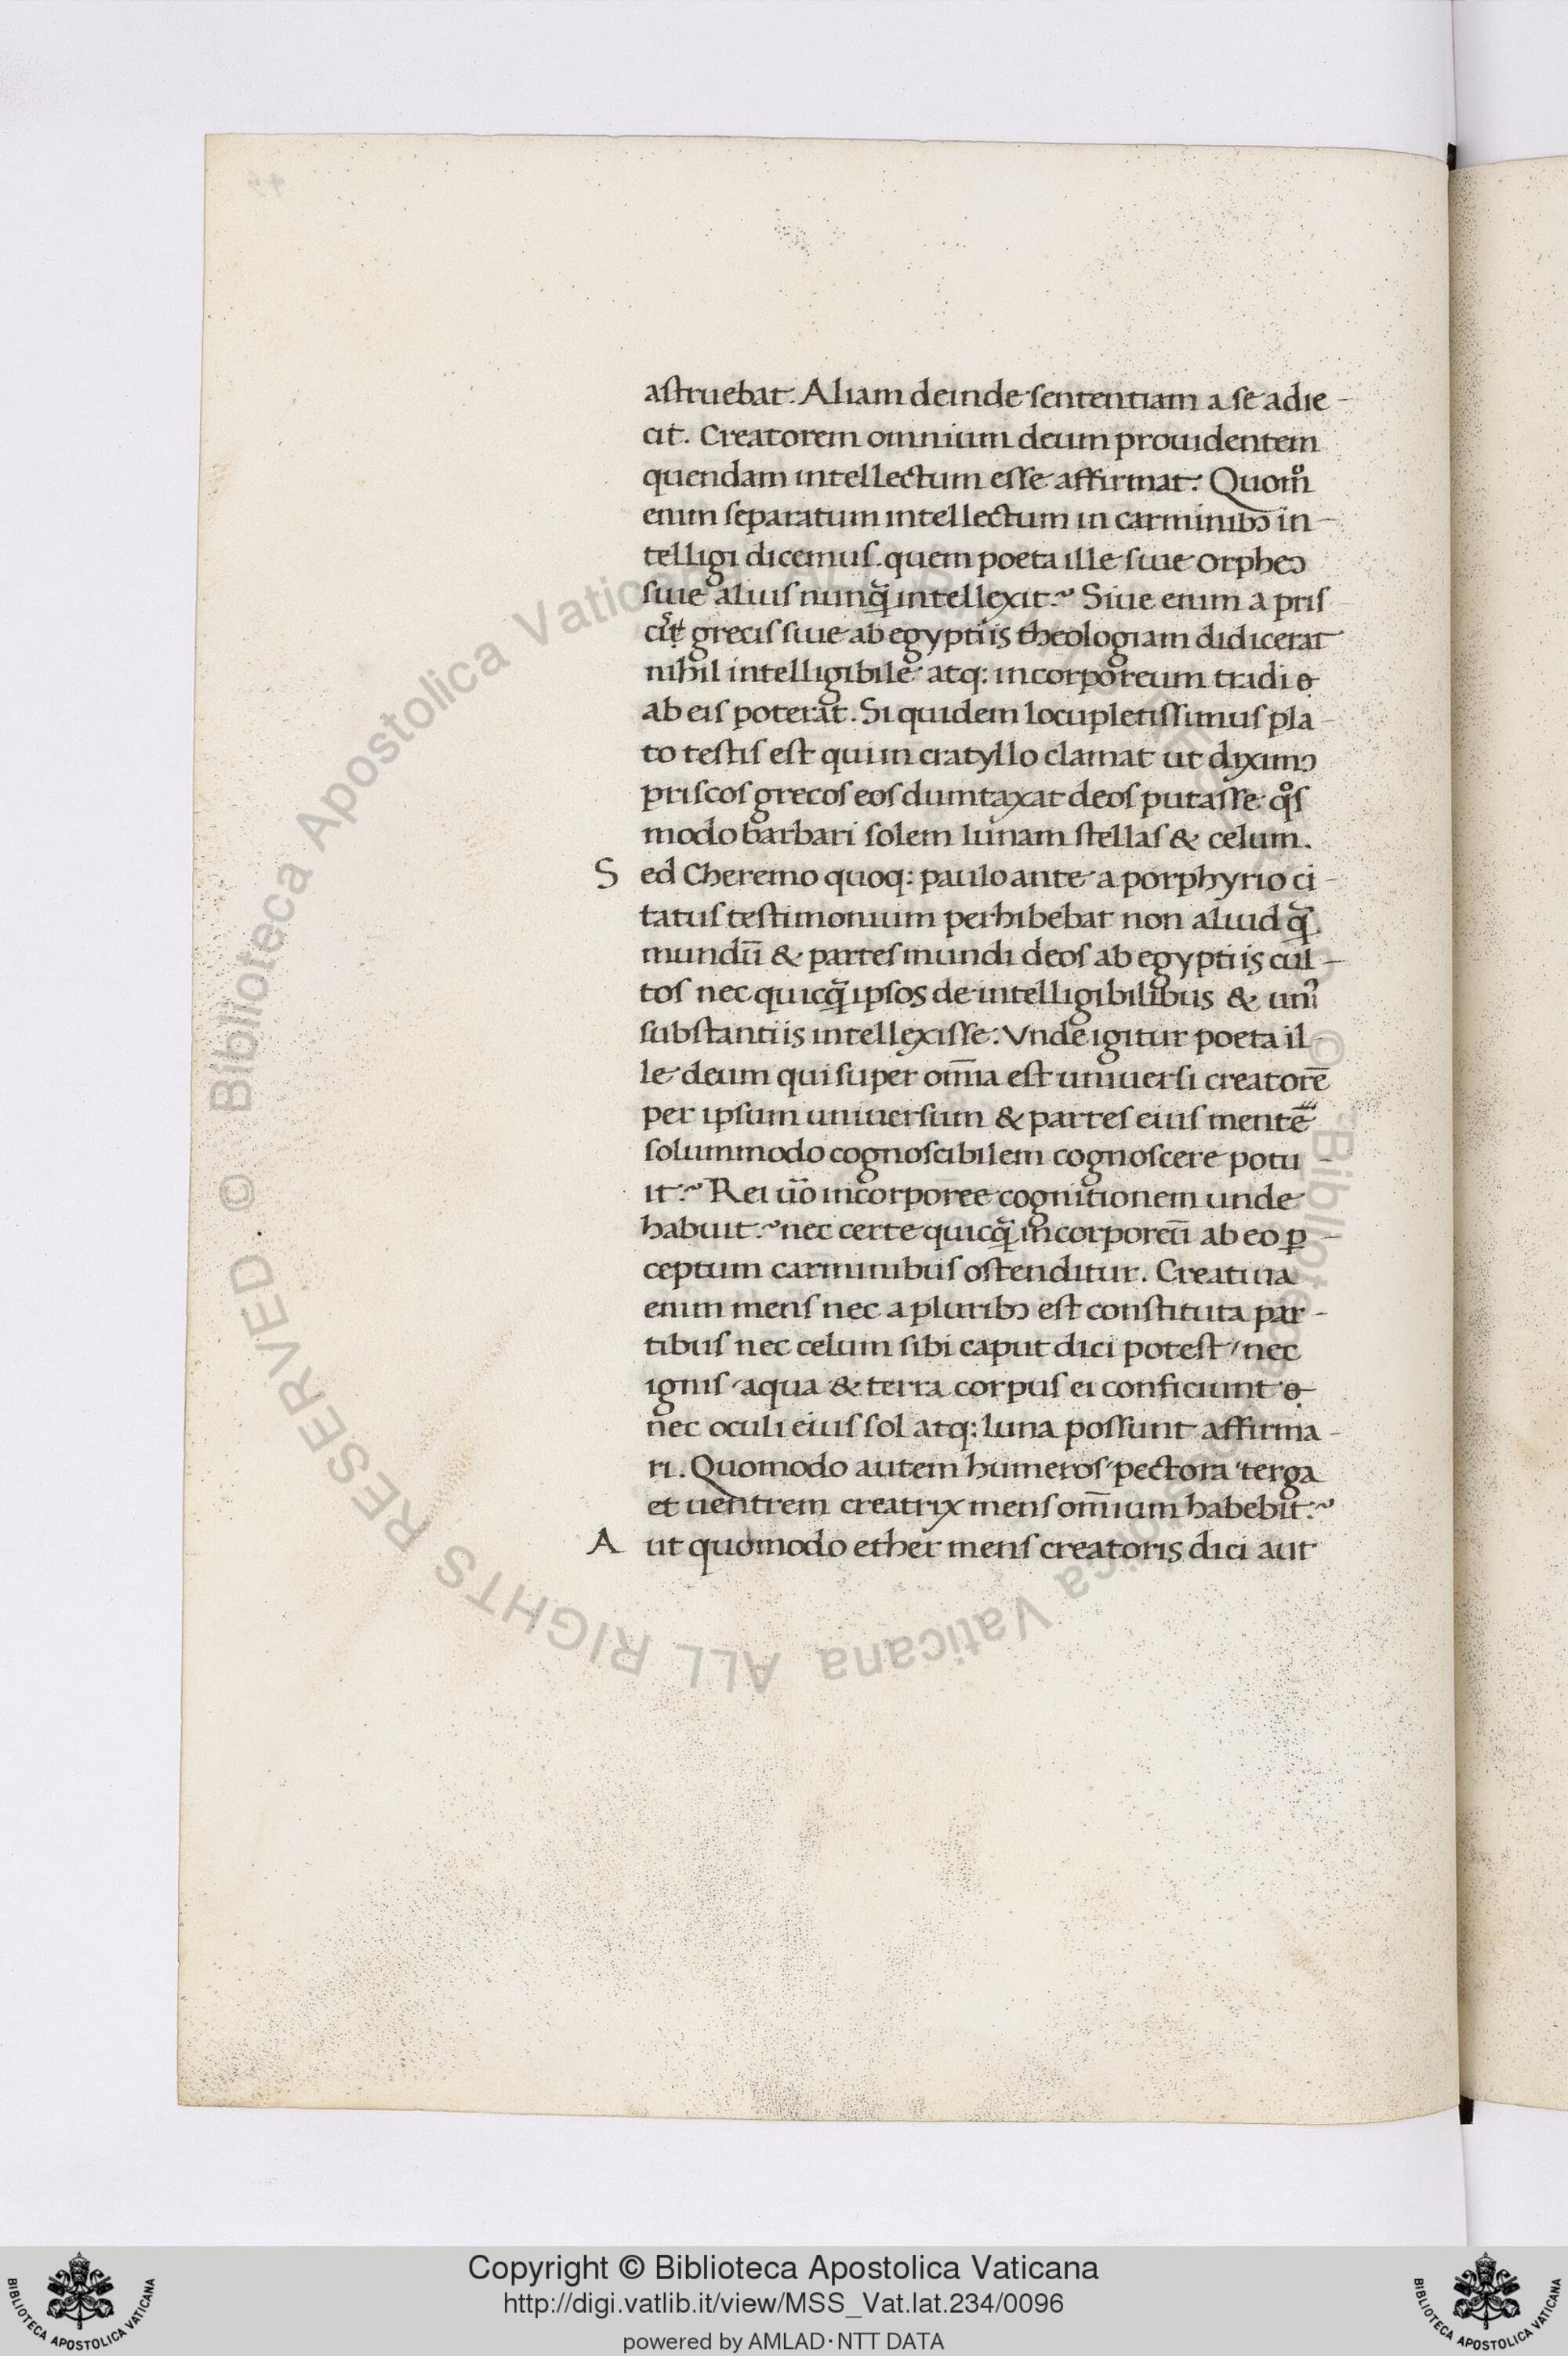 astruebat. Aliam deinde sententiam a se adie-
cit. Creatorem omnium deum prouidentem
quendam intellectum esse affirmat: Quom̊
enim separatum intellectum in carminibꝰ in-
telligi dicemus. quem poeta ille siue orpheꝰ
siue alius nunq̃ intellexit? Siue enim a pris
cis grecis siue ab egyptiis theologiam didicerat
nihil intelligibile atq: incorporeum tradi
ab eis poterat. Si quidem locupletissimus pla-
to testis est qui in cratyllo clamat ut diximꝰ
priscos grecos eos dumtaxat deos putasse qͦs
modo barbari solem lunam stellas & celum.
Sed Cheremo quoq: paulo ante a porphyrio ci-
tatus testimonium perhibebat non aliud q̃
mundū & partes mundi deos ab egyptiis cul-
tos nec quicq̃ ipsos de intelligibilibus &
substantiis intellexisse: Vnde igitur poeta il-
le deum qui super om̄ia est uniuersi creatorē
per ipsum uniuersum & partes eius mentē
solummodo cognoscibilem cognoscere potu-
it? Rei ūo incorporee cognitionem unde
habuit? nec certe quicq̃ incorporeū ab eo ꝑ-
ceptum carminibus ostenditur. Creatiua
enim mens nec a pluribꝰ est constituta par-
tibus nec celum sibi caput dici potest / nec
ignis / aqua & terra corpus ei conficiunt
nec oculi eius sol atq: luna possunt affirma-
ri. Quomodo autem humeros / pectora / terga
et uentrem creatrix mens om̄ium habebit?
Aut quomodo ether mens creatoris dici aut
© Biblioteca Apostolica Vaticana ALL RIGHTS RESERVED
Copyright © Biblioteca Apostolica Vaticana
http://digi.vatlib.it/view/MSS_Vat.lat.234/0096
powered by AMLAD·NTT DATA
BIBLIOTECA APOSTOLICA VATICANA
BIBLIOTECA APOSTOLICA VATICANA